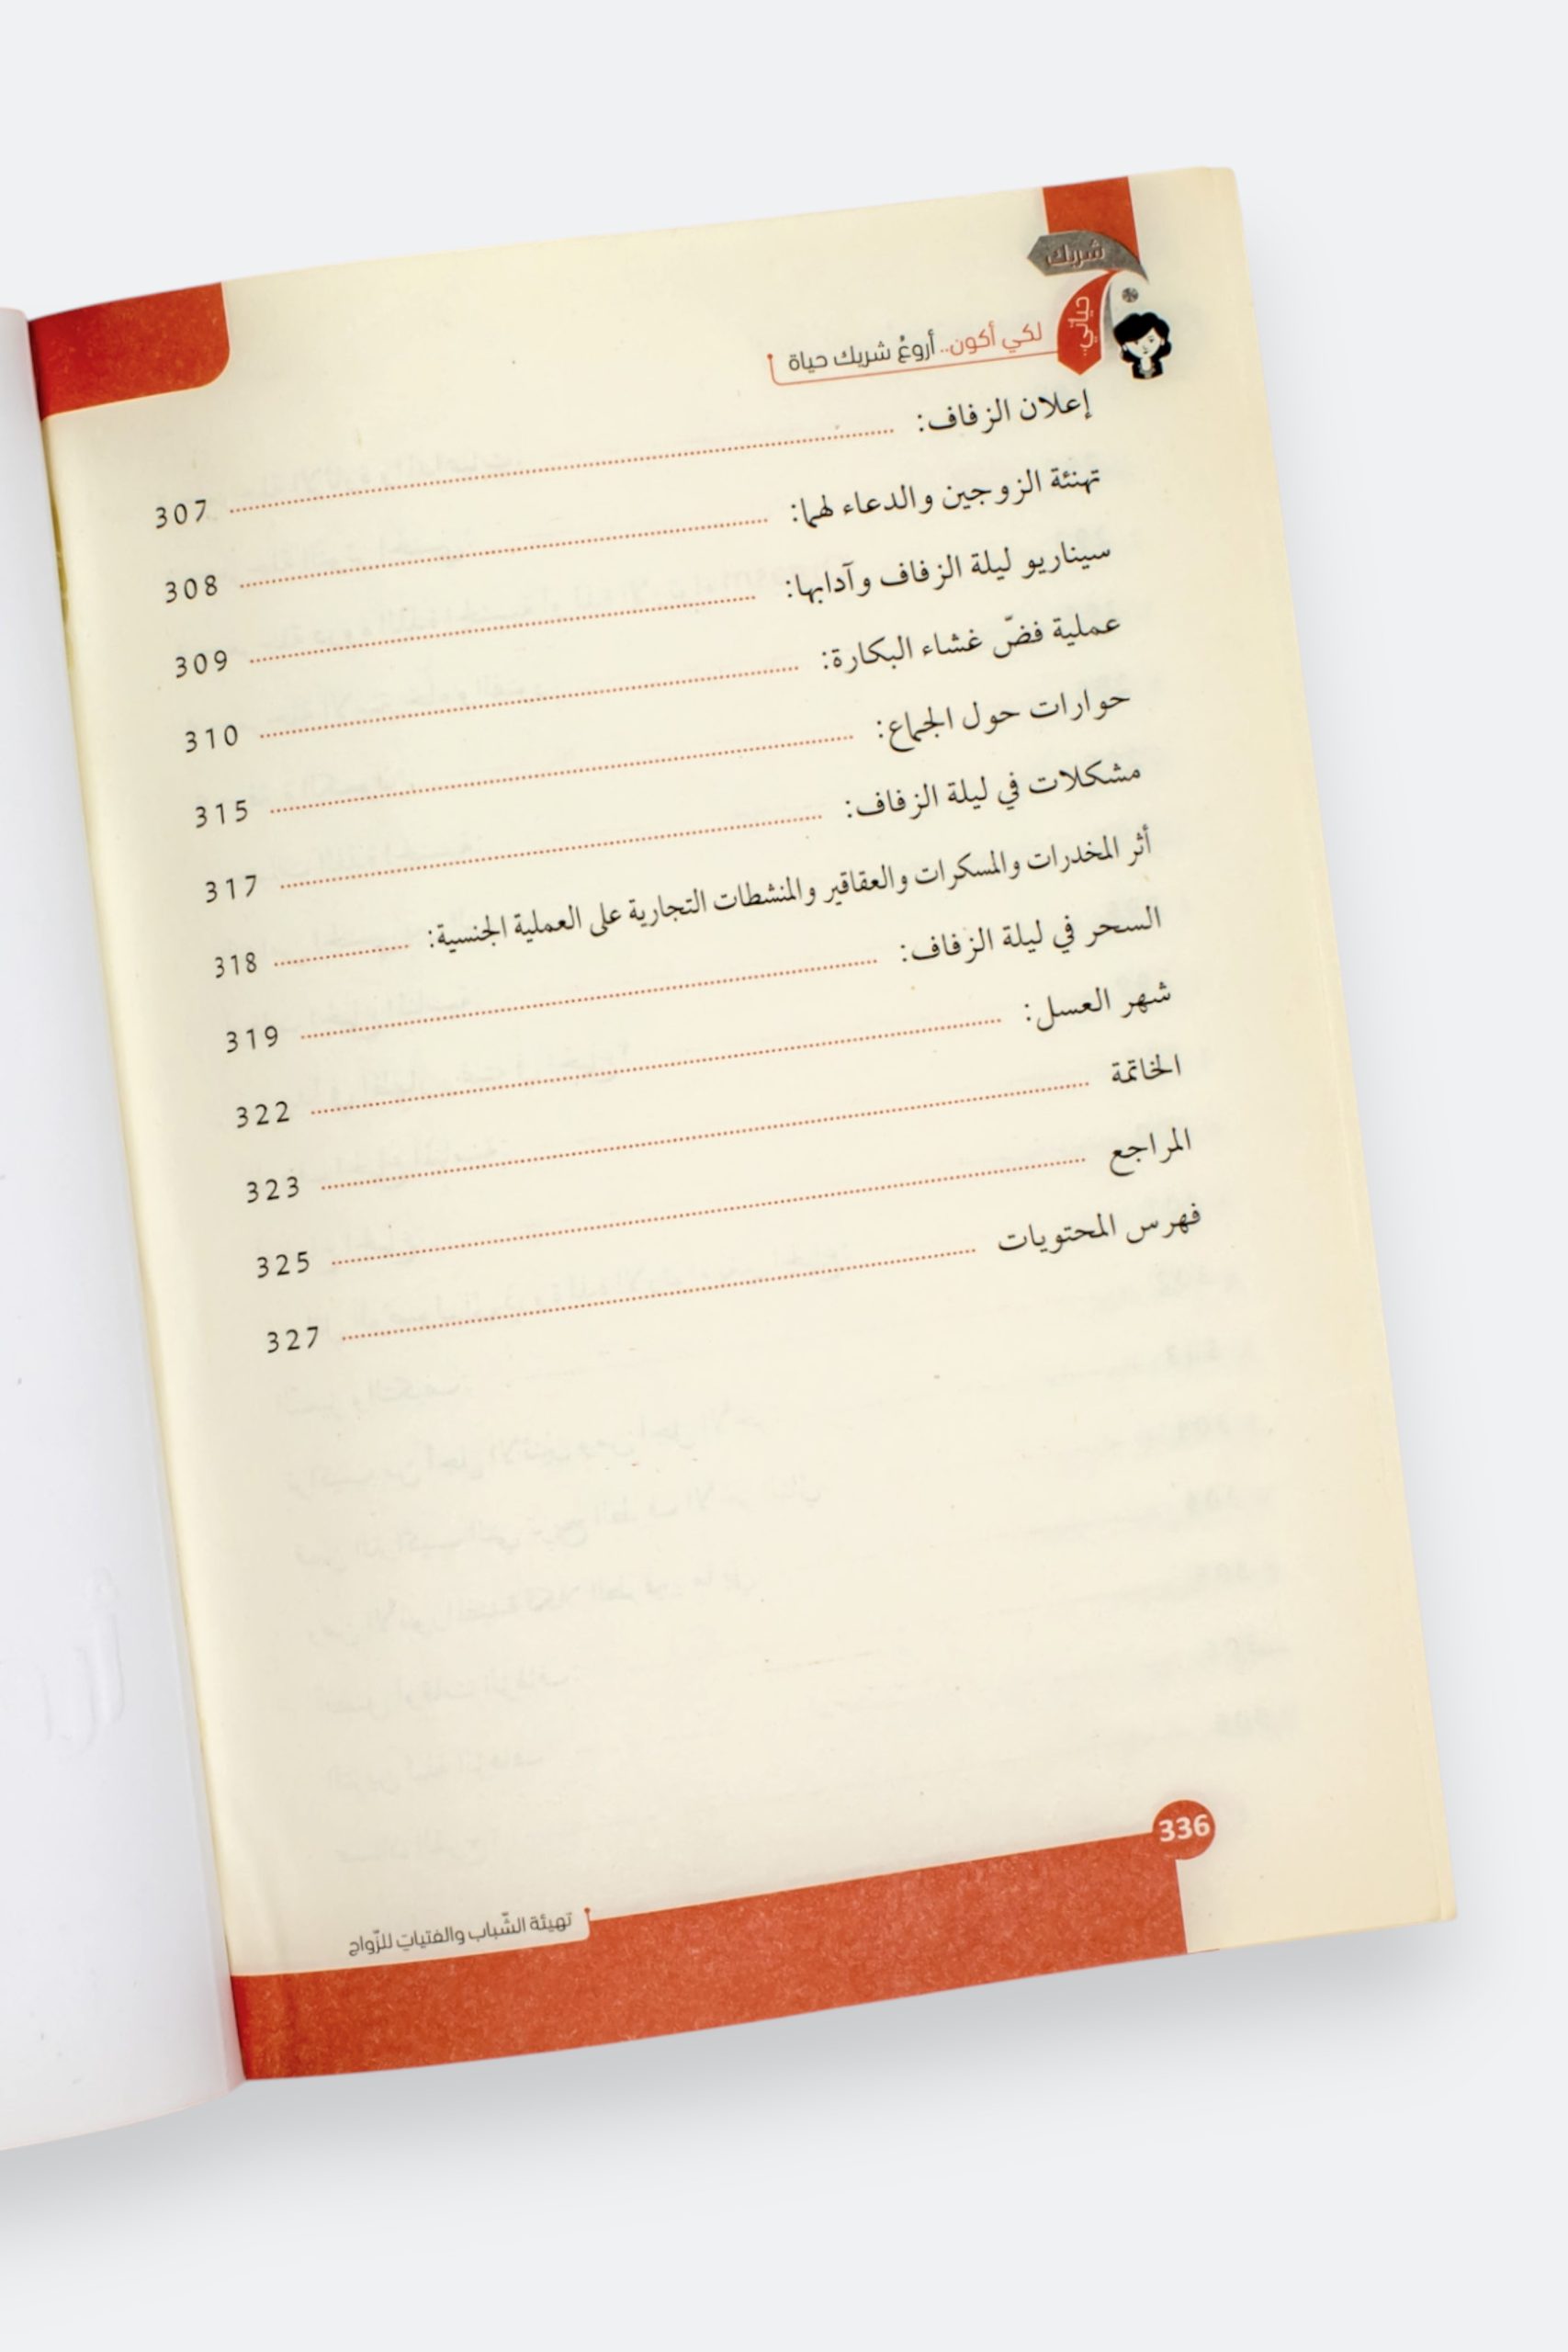 شريك
حياتي..
لكي أكون.. أروعُ شريك حياة
إعلان الزفاف: 307
تهنئة الزوجين والدعاء لهما: 308
سيناريو ليلة الزفاف وآدابها: 309
عملية فضّ غشاء البكارة: 310
حوارات حول الجماع: 315
مشكلات في ليلة الزفاف: 317
أثر المخدرات والمسكرات والعقاقير والمنشطات التجارية على العملية الجنسية: 318
السحر في ليلة الزفاف: 319
شهر العسل: 322
الخاتمة 323
المراجع 325
فهرس المحتويات 327
336
تهيئة الشّباب والفتيات للزّواج